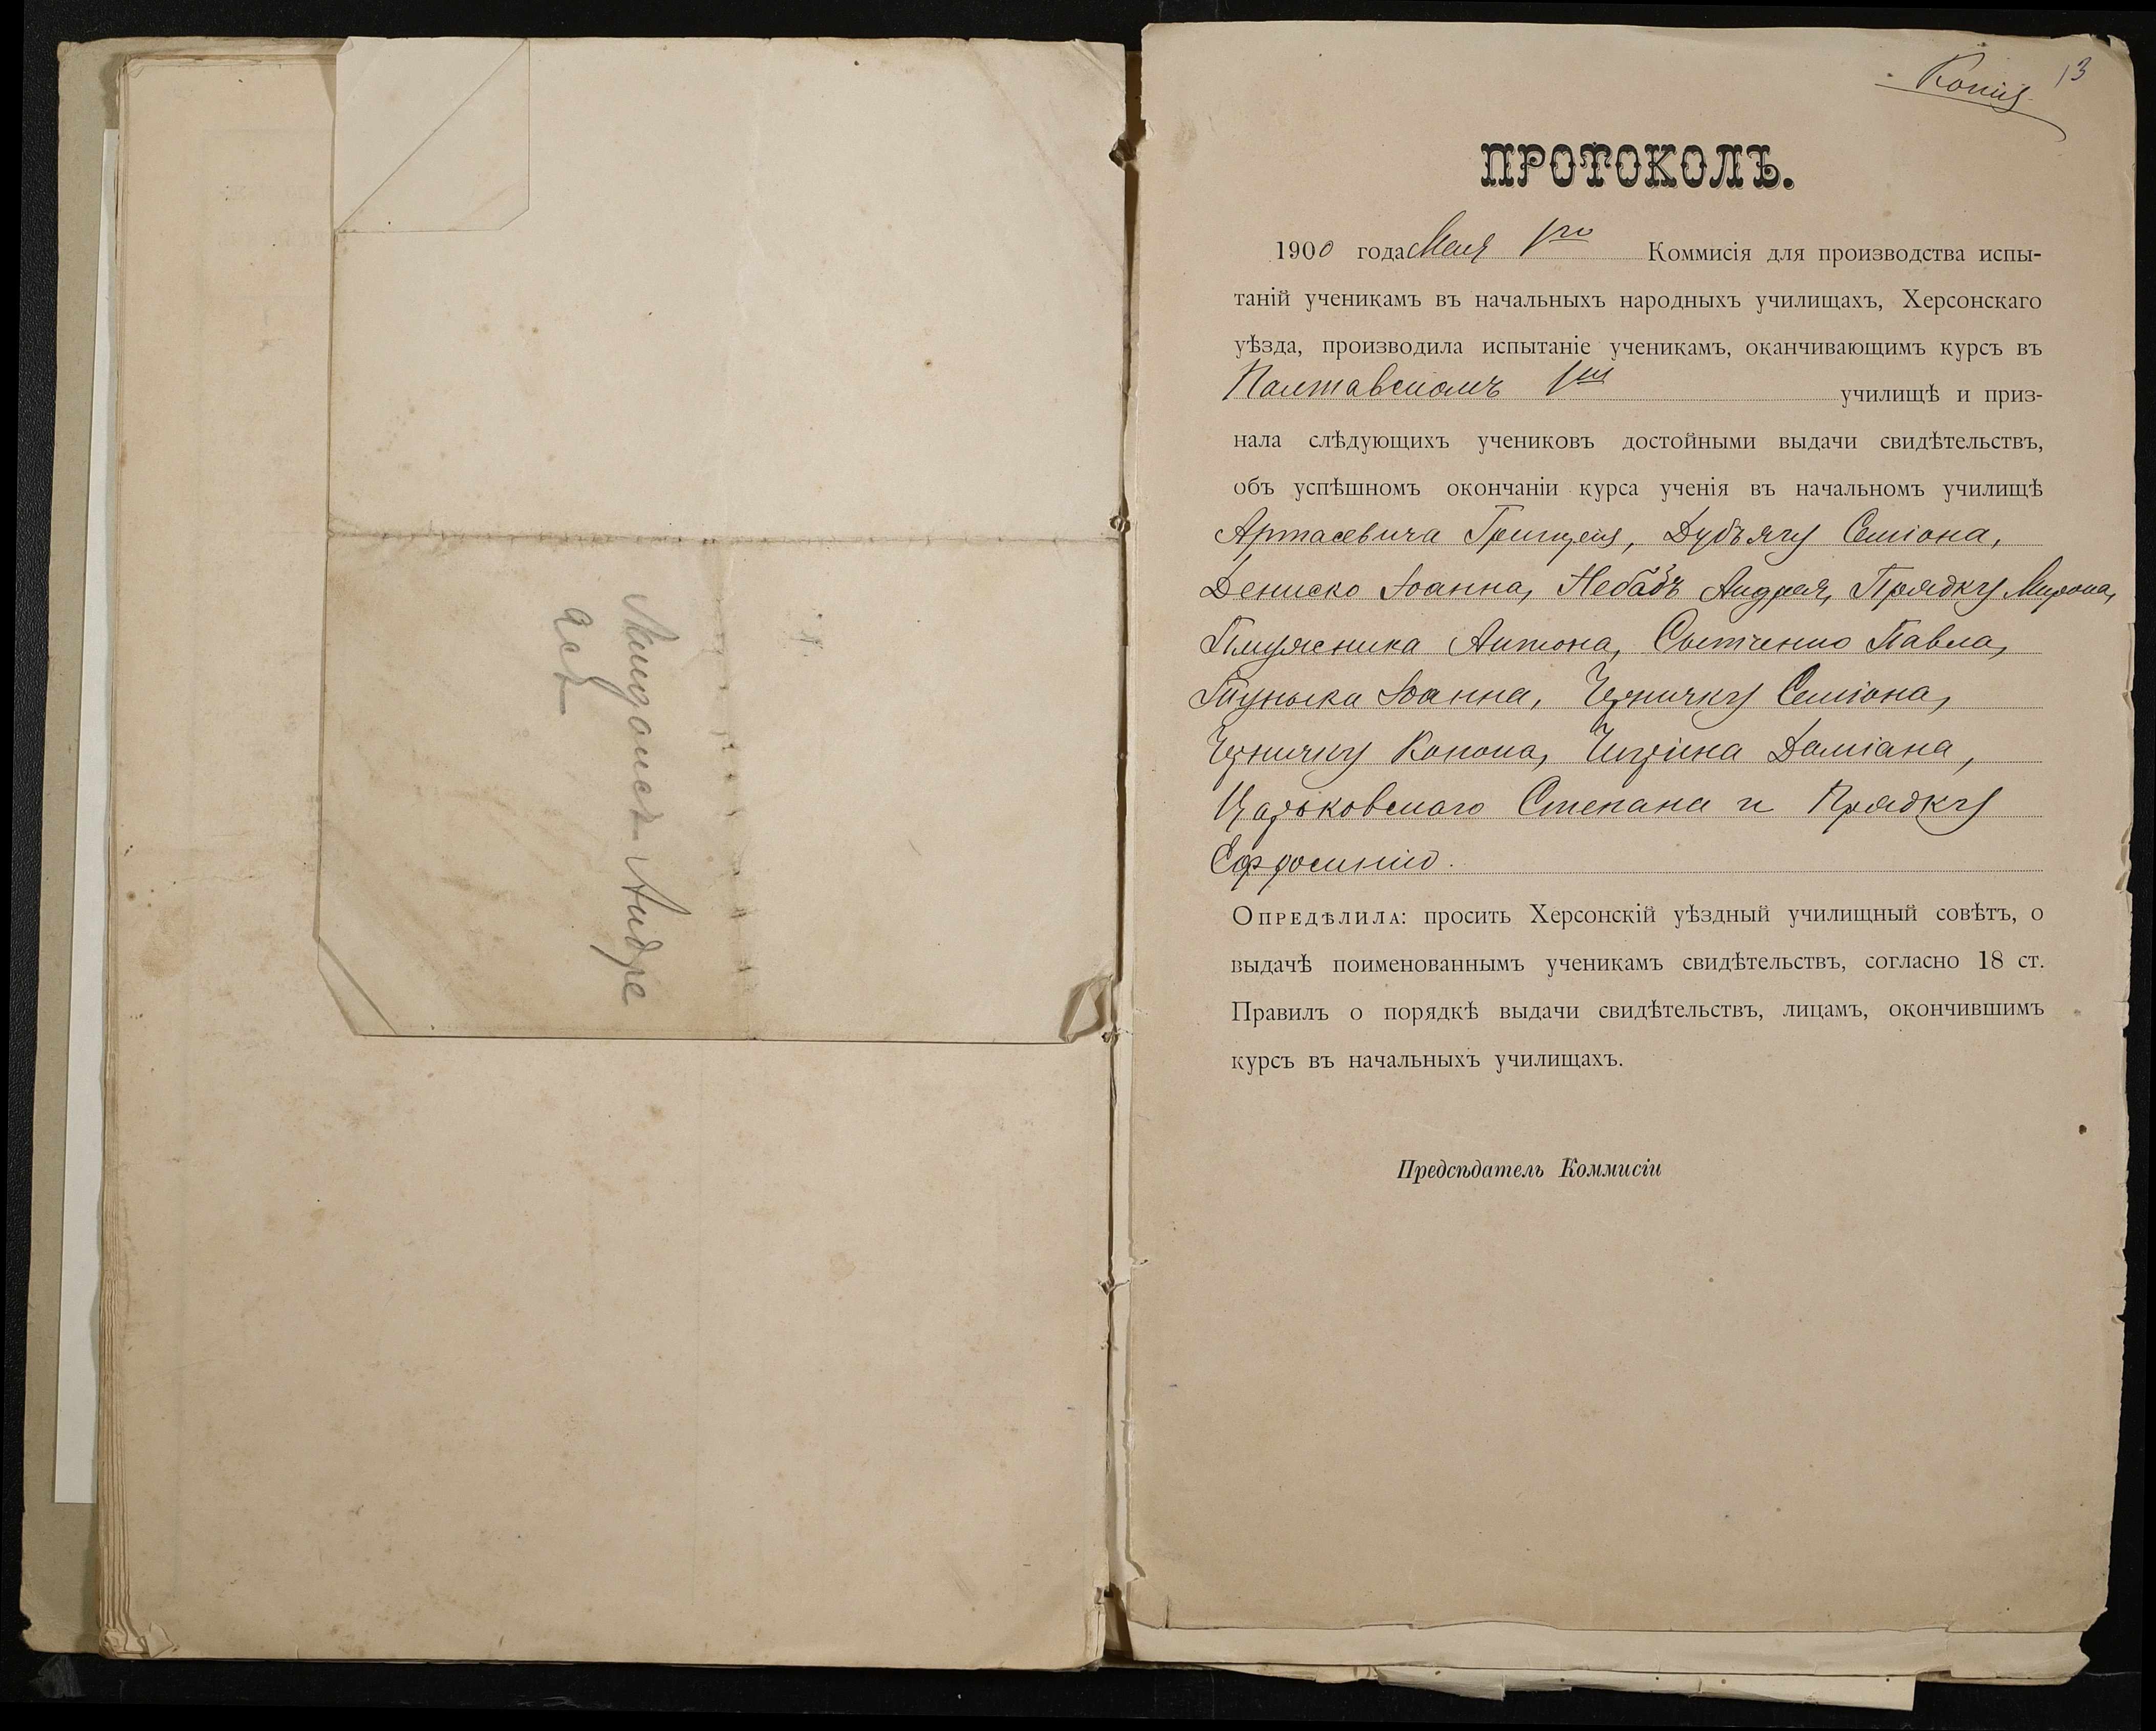 Копія
13
ПРОТОКОЛЪ.
1900 года Мая 1го Коммисія для производства испы-
таній ученикамъ въ начальныхъ народныхъ училищахъ, Херсонскаго
уѣзда, производила испытаніе ученикамъ, оканчивающимъ курсъ въ
Полтавскомъ 1мъ училищѣ и приз-
нала слѣдующихъ учениковъ достойными выдачи свидѣтельствъ,
объ успѣшномъ окончаніи курса ученія въ начальномъ училищѣ
Артасевича Григорія, Дубъягу Семіона,
Дениско Іоанна, Андрея, Прядку Мирона,
Антона, Сытченко Павла,
Іоанна, Черничку Семіона,
Черничку Конона, Чигрина Даміана,
Царьковскаго Степана и Прядку
Ефросинію.
Опредѣлила: просить Херсонскій уѣздный училищный совѣтъ, о
выдачѣ поименованнымъ ученикамъ свидѣтельствъ, согласно 18 ст.
Правилъ о порядкѣ выдачи свидѣтельствъ, лицамъ, окончившимъ
курсъ въ начальныхъ училищахъ.
Предсѣдатель Коммисіи